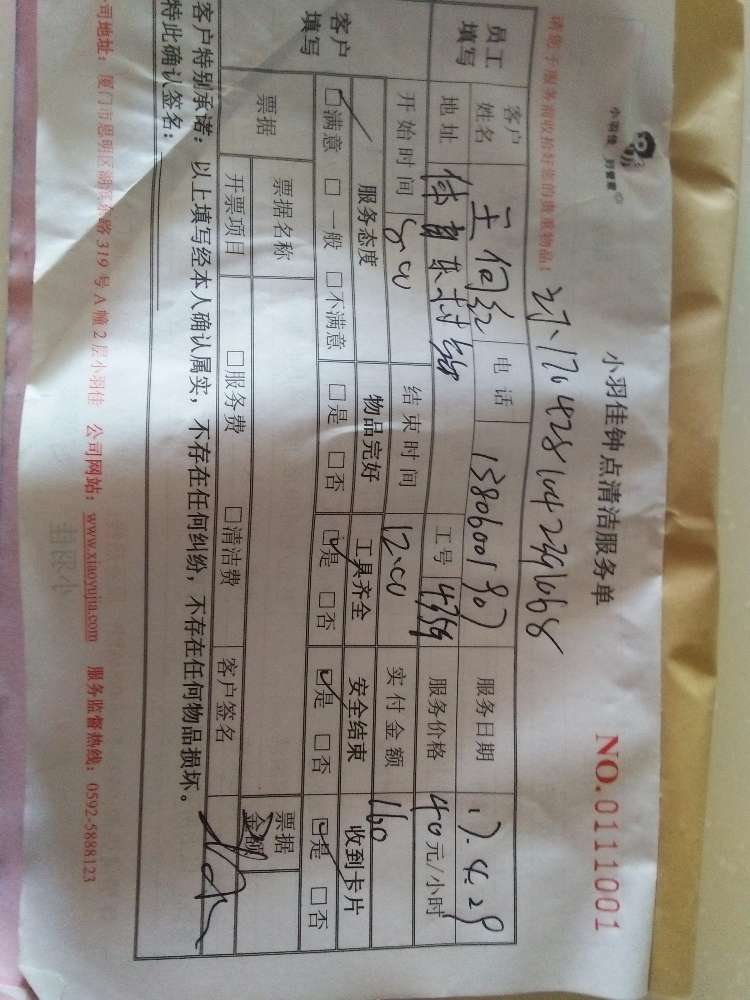 小羽佳 好管家
小羽佳钟点清洁服务单
NO.0111001
请您于服务前收拾好您的贵重物品！
170428104239068
员工填写 客户姓名 王何红 电话 13806001907 服务日期 17.4.29
地址 体育东村 工号 4359 服务价格 40元/小时
开始时间 8:00 结束时间 12:00 实付金额 160
客户填写 服务态度 物品完好 工具齐全 安全结束 收到卡片
☑满意 □一般 □不满意 □是 □否 ☑是 □否 ☑是 □否 ☑是 □否
票据 票据名称 票据金额
开票项目 □服务费 □清洁费 客户签名
客户特别承诺：以上填写经本人确认属实，不存在任何纠纷，不存在任何物品损坏。
特此确认签名：
司地址：厦门市思明区湖滨东路319号A幢2层小羽佳 公司网站：www.xiaoyujia.com 服务监督热线：0592-5888123